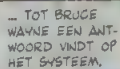 ... TOT BRUCE
WAYNE EEN ANT-
WOORD VINDT OP
HET SYSTEEM.